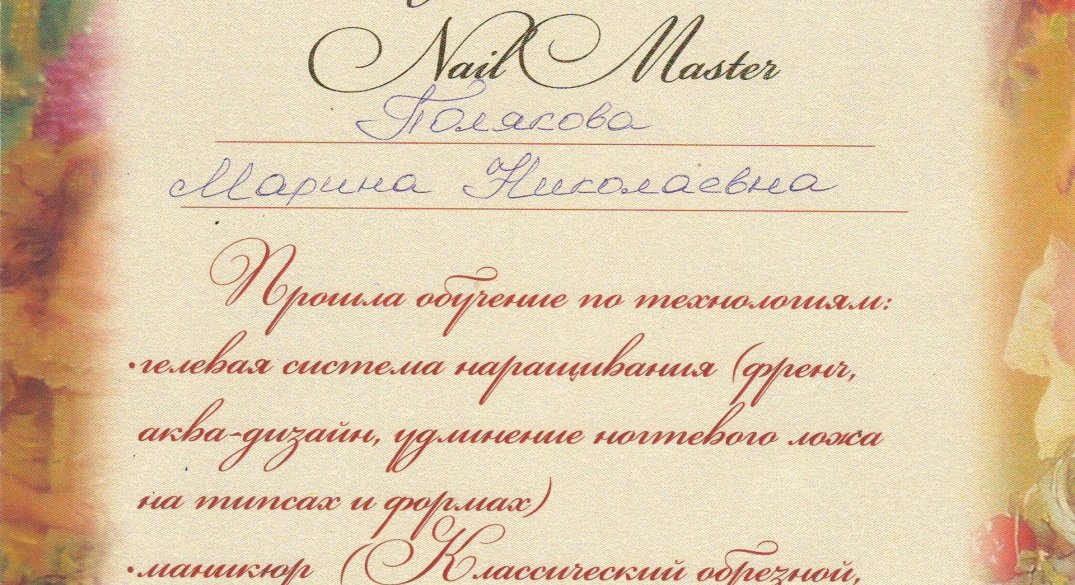 Nail Master
Полякова
Марина Николаевна
Прошла обучение по технологиям:
·гелевая система наращивания (френч,
аква-дизайн, удлинение ногтевого ложа
на типсах и формах)
·маникюр (Классический обрезной,